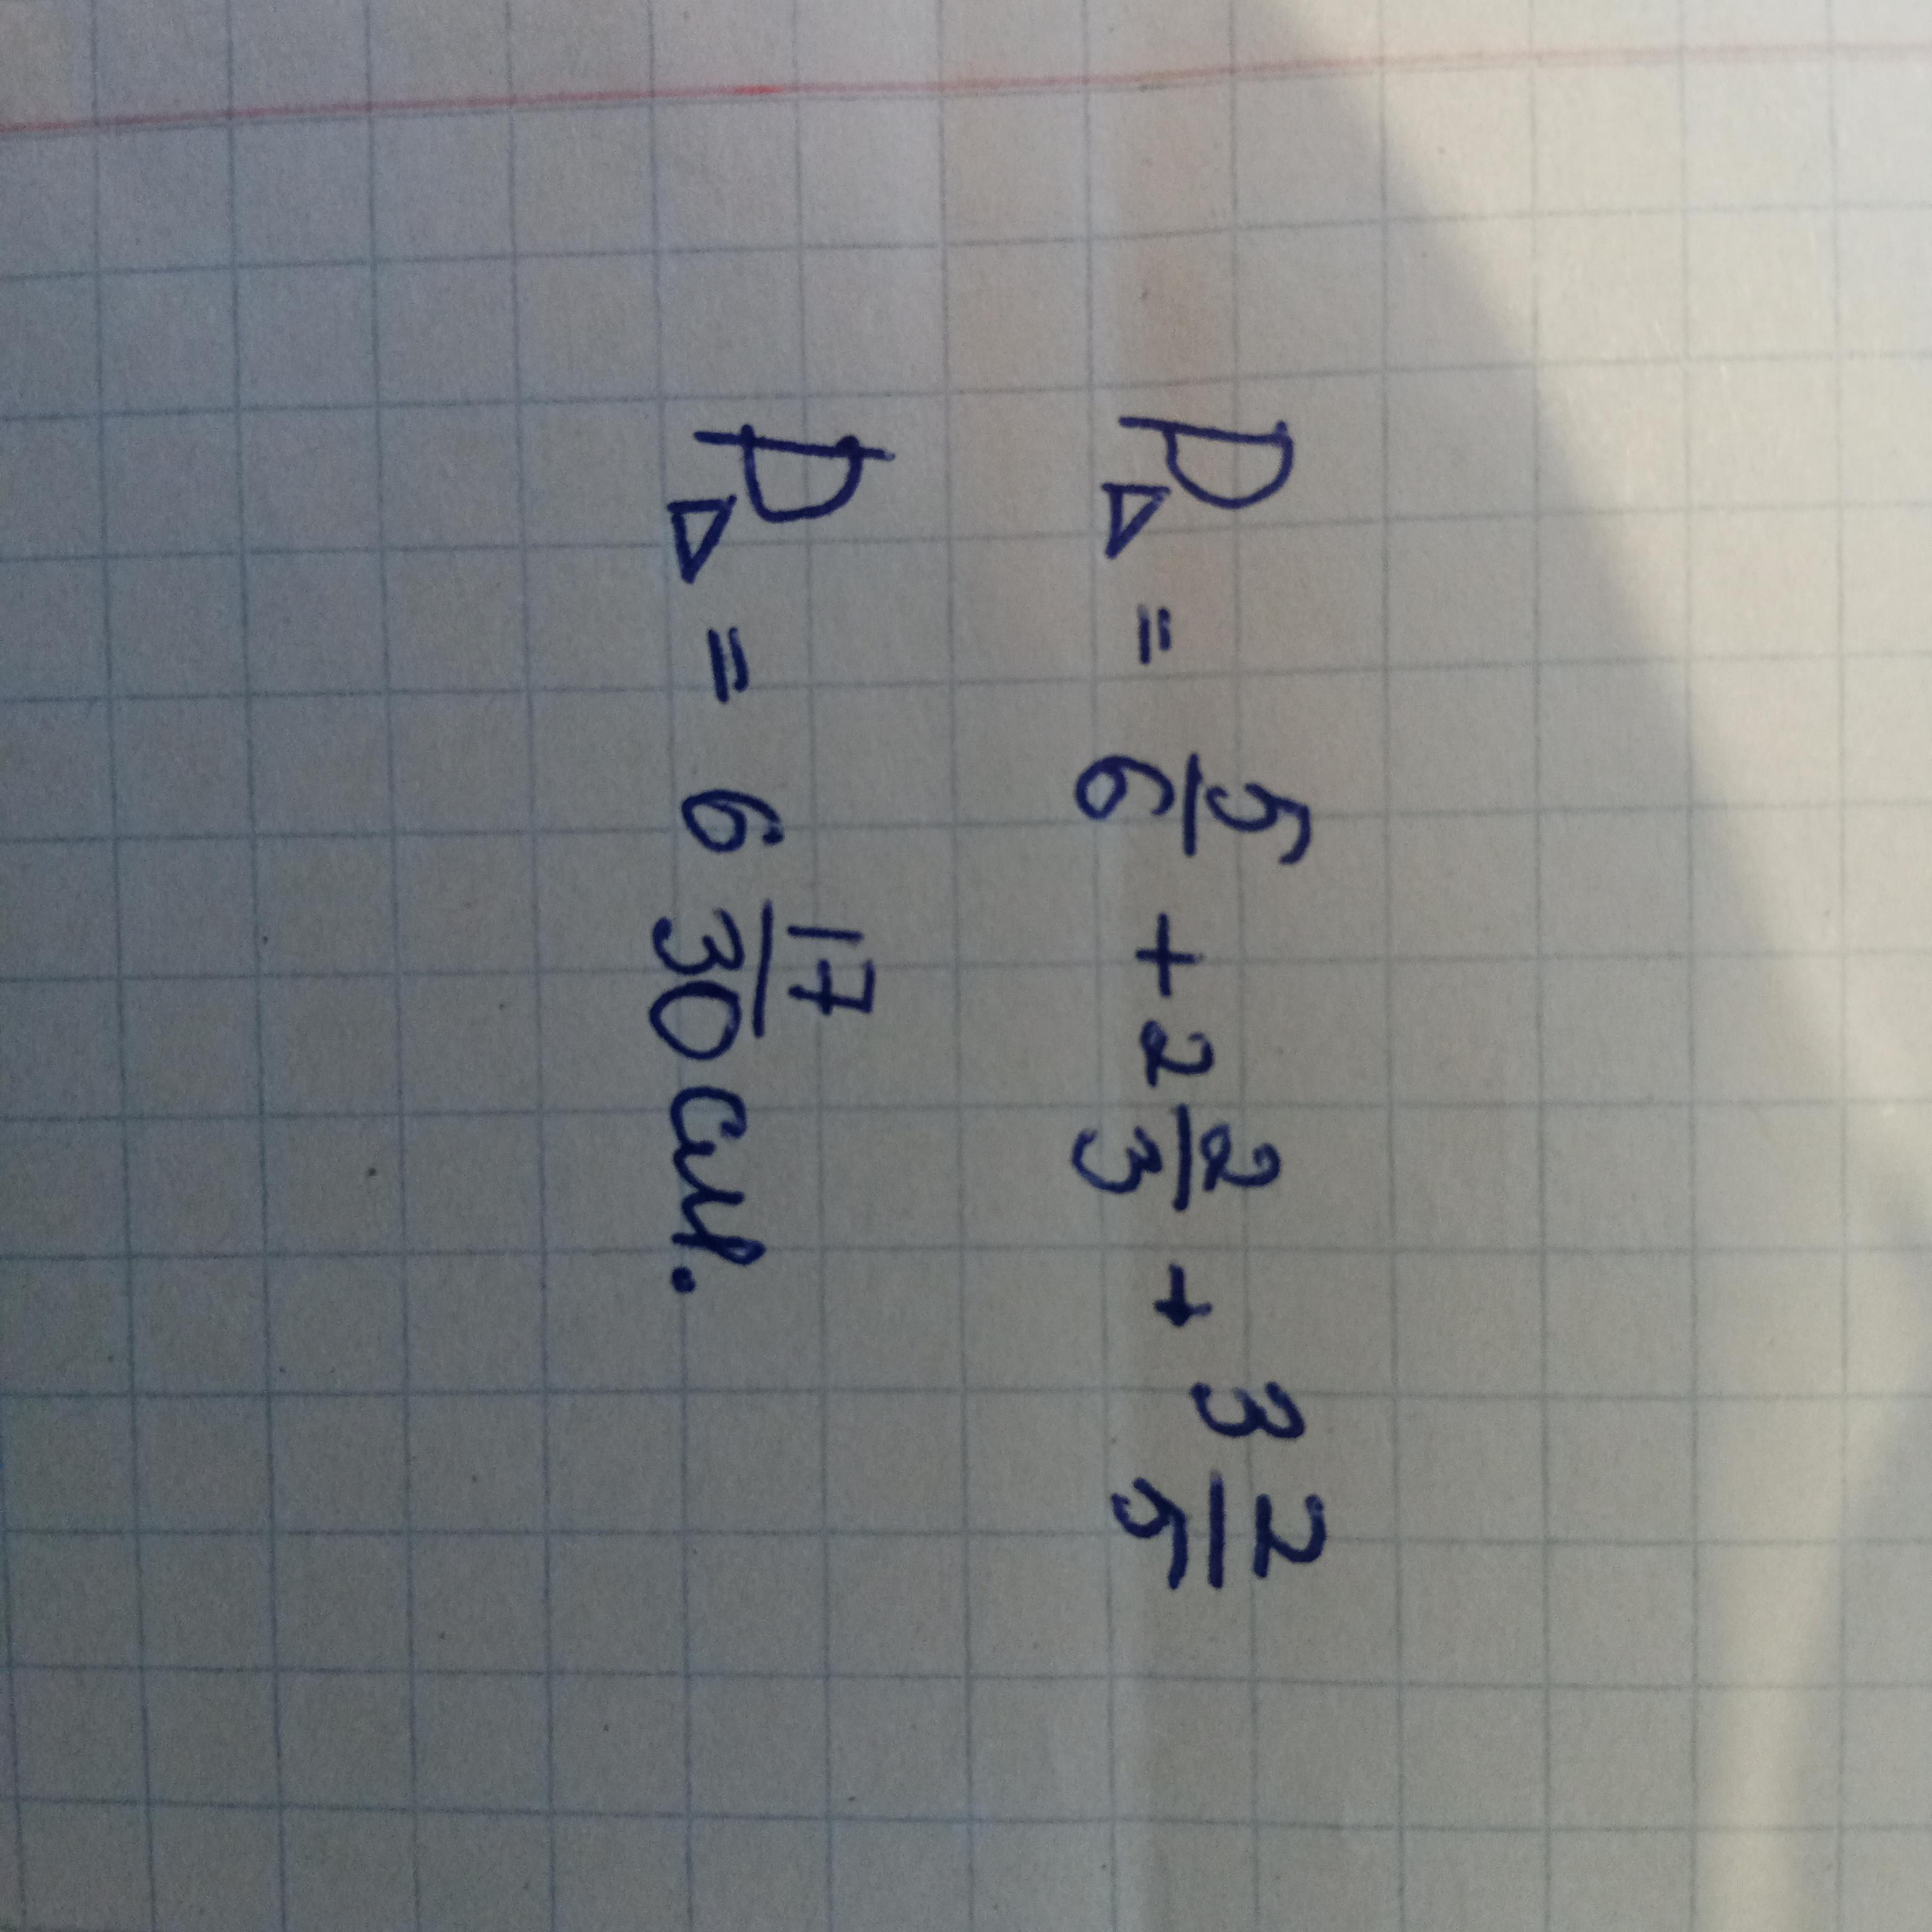 P△ = 5/6 + 2 2/3 + 3 2/5
P△ = 6 17/30 см.